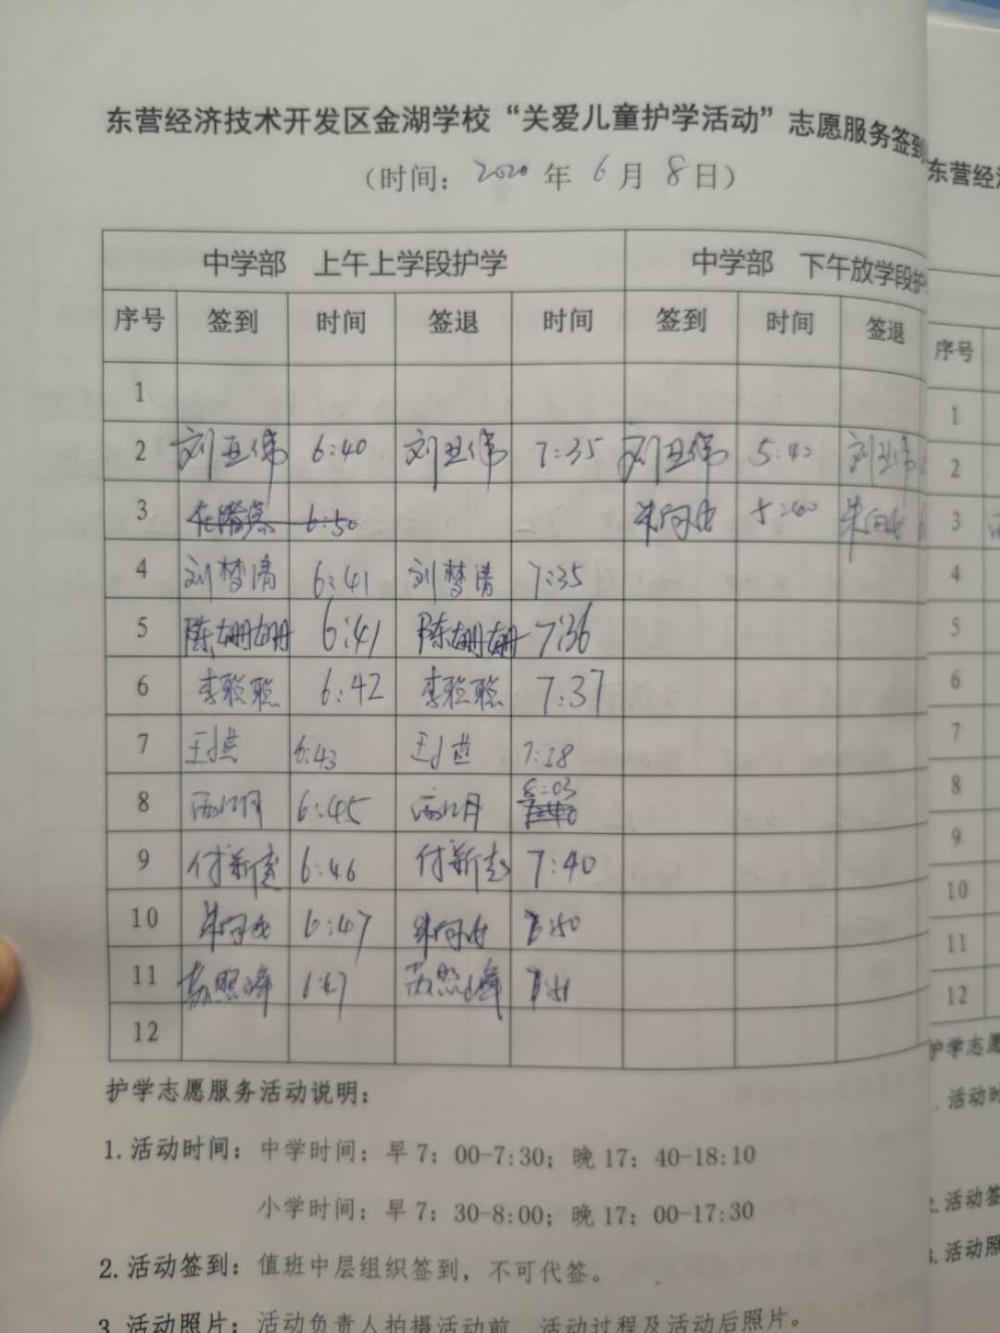 东营经济技术开发区金湖学校“关爱儿童护学活动”志愿服务签到
(时间: 2020 年 6 月 8 日)
中学部 上午上学段护学 中学部 下午放学段护
序号 签到 时间 签退 时间 签到 时间 签退
1
2 刘丑伟 6:40 刘丑伟 7:35 刘丑伟 5:40 刘丑伟
3 6:50
4 刘梦清 6:41 刘梦清 7:35
5 陈姗姗 6:41 陈姗姗 7:36
6 李聪聪 6:42 李聪聪 7:37
7 6:43 7:38
8 6:45 8:03
9 付新彦 6:46 付新彦 7:40
10 6:47 7:50
11 苏照峰 苏照峰
12
护学志愿服务活动说明:
1.活动时间: 中学时间: 早 7: 00-7:30; 晚 17: 40-18:10
小学时间: 早 7: 30-8:00; 晚 17: 00-17:30
2.活动签到: 值班中层组织签到, 不可代签。
3.活动照片: 活动负责人拍摄活动前、活动过程及活动后照片。
东营经济
序号
1
2
3
4
5
6
7
8
9
10
11
12
护学志愿
活动时
活动签
活动照